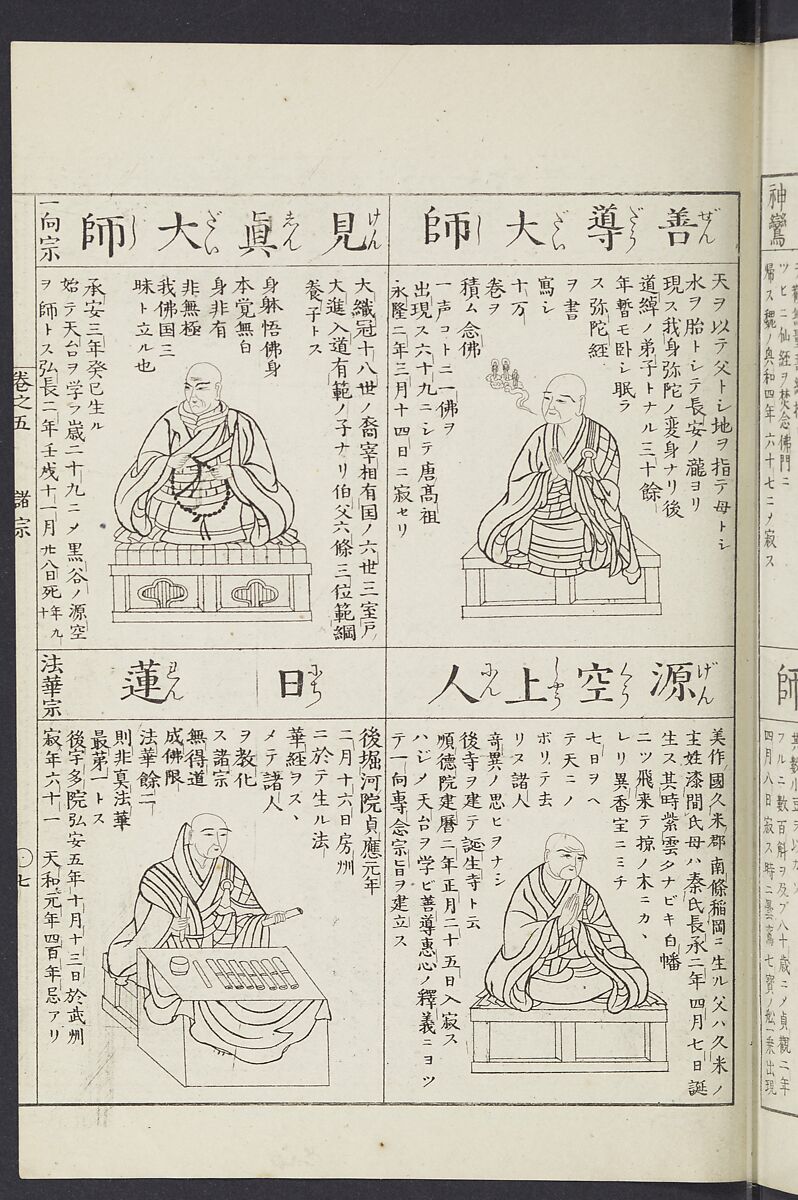 善導大師
ぜんだうだいし
天ヲ以テ父トシ地ヲ指テ母トシ
水ヲ胎トシテ長安ノ瀧ヨリ
現ス我身弥陀ノ変身ナリ後
道綽ノ弟子トナル三十餘
年暫モ卧シ眠ラ
ス弥陀経
ヲ書
寫シ
十万
巻ヲ
積ム念佛
一声コトニ一佛ヲ
出現ス六十九ニシテ唐髙祖
永隆二年三月十四日ニ寂セリ
見眞大師
けんしんだいし
一向宗
大織冠十八世ノ裔宰相有国ノ六世三室戸
大進入道有範ノ子ナリ伯父六條三位範綱
養子トス
身躰悟佛身
本覚無白
身非有
非無極
我佛国三
昧ト立ル也
承安三年癸巳生ル
始テ天台ヲ学フ歳二十九ニメ黒谷ノ源空
ヲ師トス弘長二年壬戌十一月廿八日死年九十
源空上人
げんくうしやうにん
美作國久米郡南條稲岡ニ生ル父ハ久米ノ
主姓漆間氏母ハ秦氏長承二年四月七日誕
生ス其時紫雲タナビキ白幡
二ツ飛来テ掠ノ木ニカヽ
レリ異香室ニミチ
七日ヲヘ
テ天ニノ
ボリテ去
リヌ諸人
竒異ノ思ヒヲナシ
後寺ヲ建テ誕生寺ト云
順德院建暦二年正月二十五日入寂ス
ハジメ天台ヲ学ビ善導惠心ノ釋義ニヨツ
テ一向專念宗旨ヲ建立ス
日蓮
にちれん
法華宗
後堀河院貞應元年
二月十六日房州
ニ於テ生ル法
華経ヲスヽ
メテ諸人
ヲ教化
ス諸宗
無得道
成佛限
法華餘二
則非真法華
最第一トス
後宇多院弘安五年十月十三日於武州
寂年六十一 天和元年四百年忌アリ
巻之五 諸宗 〇七
神鸞
ツヒニ仙経ヲ焚念佛門ニ
帰ス魏ノ興和四年六十七ニメ寂ス
師
フルニ数百斛ヲ及ブ八十歳ニメ貞觀二年
四月八日寂ス時ニ曇鸞七寳ノ舩ニ乗出現